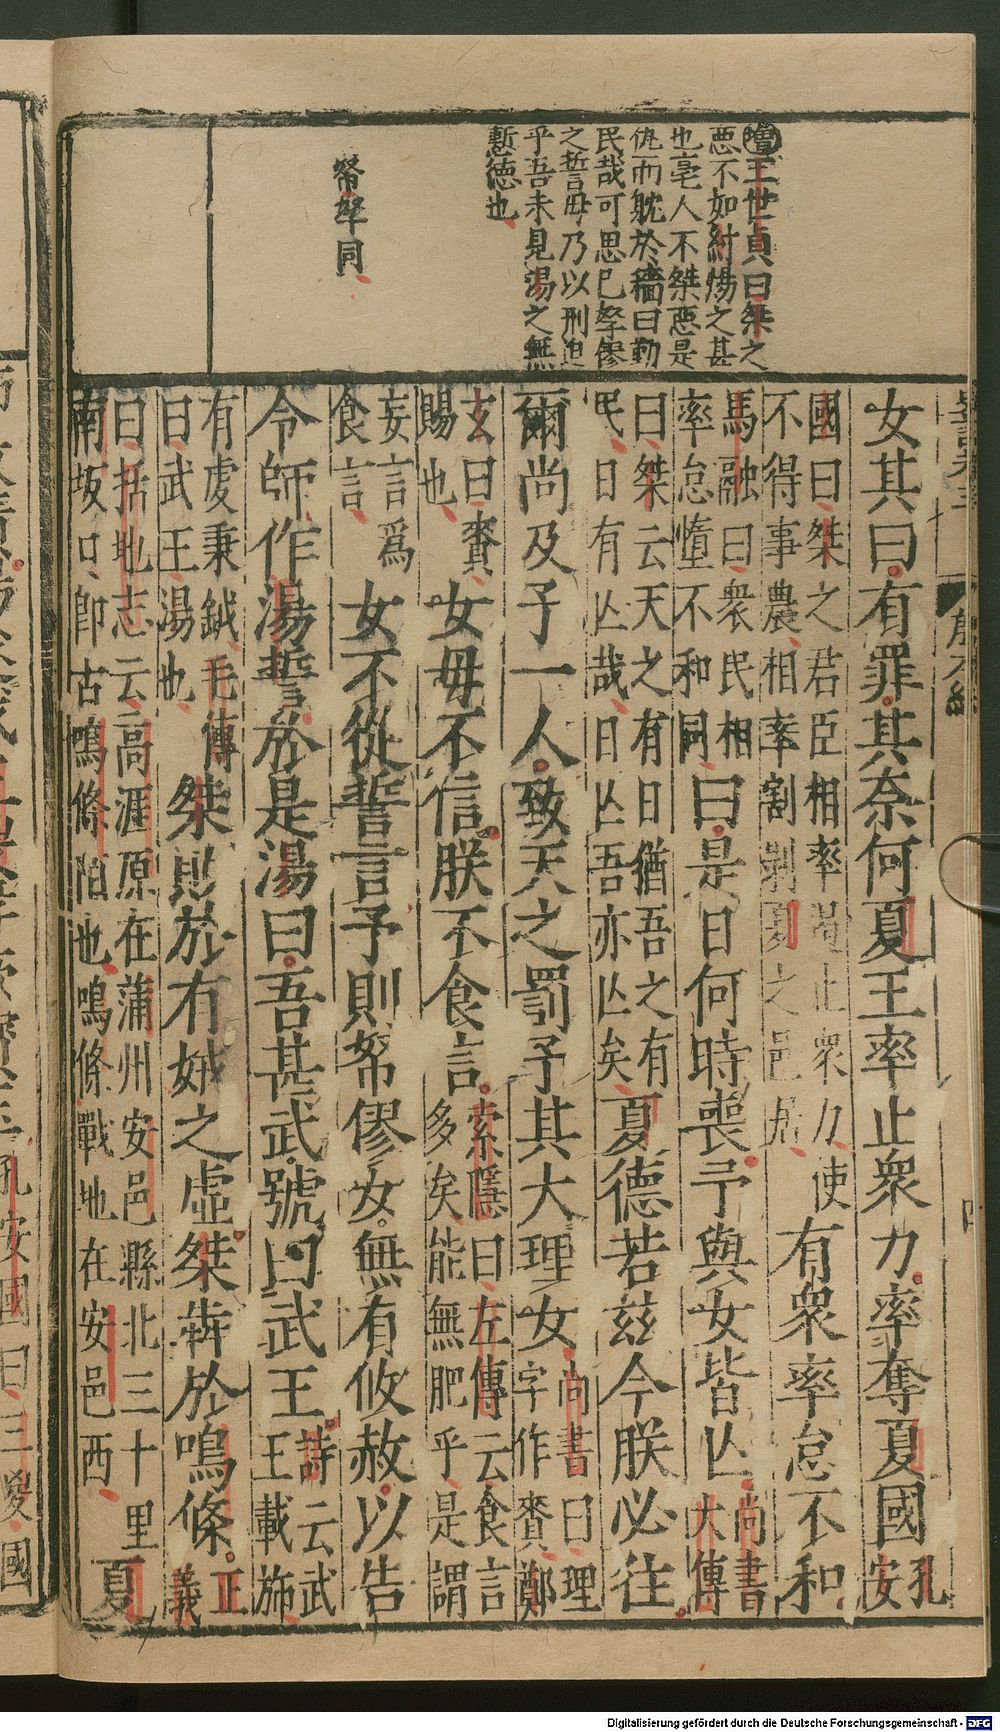 增王世貞曰桀之
惡不如紂湯之甚
也亳人不桀惡是
仇而躭於穡曰勤
民哉可思已孥僇
之誓毋乃以刑迫
乎吾未見湯之無
慙德也
帑孥同
史記卷三 殷本紀 四
女其曰有罪其奈何夏王率止衆力率奪夏國孔安
國曰桀之君臣相率遏止衆力使不得事農相率割剥夏之邑居有衆率怠不和
馬融曰衆民相率怠惰不和同曰是日何時喪予與女皆亾尚書大傳
曰桀云天之有日猶吾之有民日有亾哉日亾吾亦亾矣夏德若兹今朕必往
爾尚及予一人致天之罰予其大理女尚書曰理字作賚鄭
玄曰賚賜也女毋不信朕不食言索隱曰左傳云食言多矣能無肥乎是謂
妄言爲食言女不從誓言予則帑僇女無有攸赦以告
令師作湯誓於是湯曰吾甚武號曰武王詩云武王載斾
有虔秉鉞毛傳曰武王湯也桀敗於有娀之虛桀犇於鳴條正義
曰括地志云高涯原在蒲州安邑縣北三十里南坂口卽古鳴條陌也鳴條戰地在安邑西夏
Digitalisierung gefördert durch die Deutsche Forschungsgemeinschaft - DFG